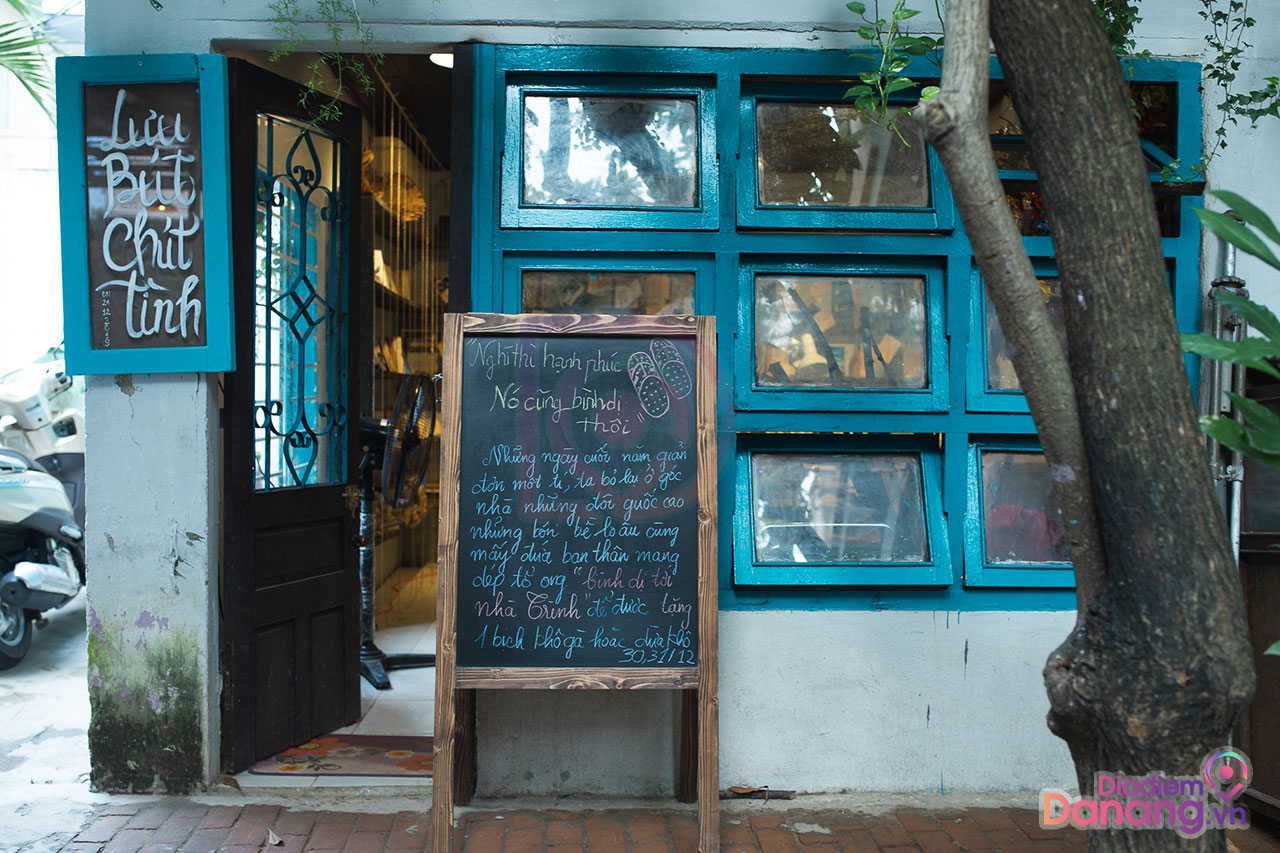 Lưu
Bút
Chút
tình
ĐN
24
12
2019
Nghĩ thì hạnh phúc
Nó cũng bình dị
thôi
Những ngày cuối năm giản
đơn một tí, ta bỏ lại ở góc
nhà những đôi guốc cao
những bon bề lo âu cùng
mấy đứa bạn thân mang
dép tổ ong "bình dị tới
nhà Trình" để được tặng
1 bịch khô gà hoặc dừa khô
30,31/12
Diadiem
Danang.vn